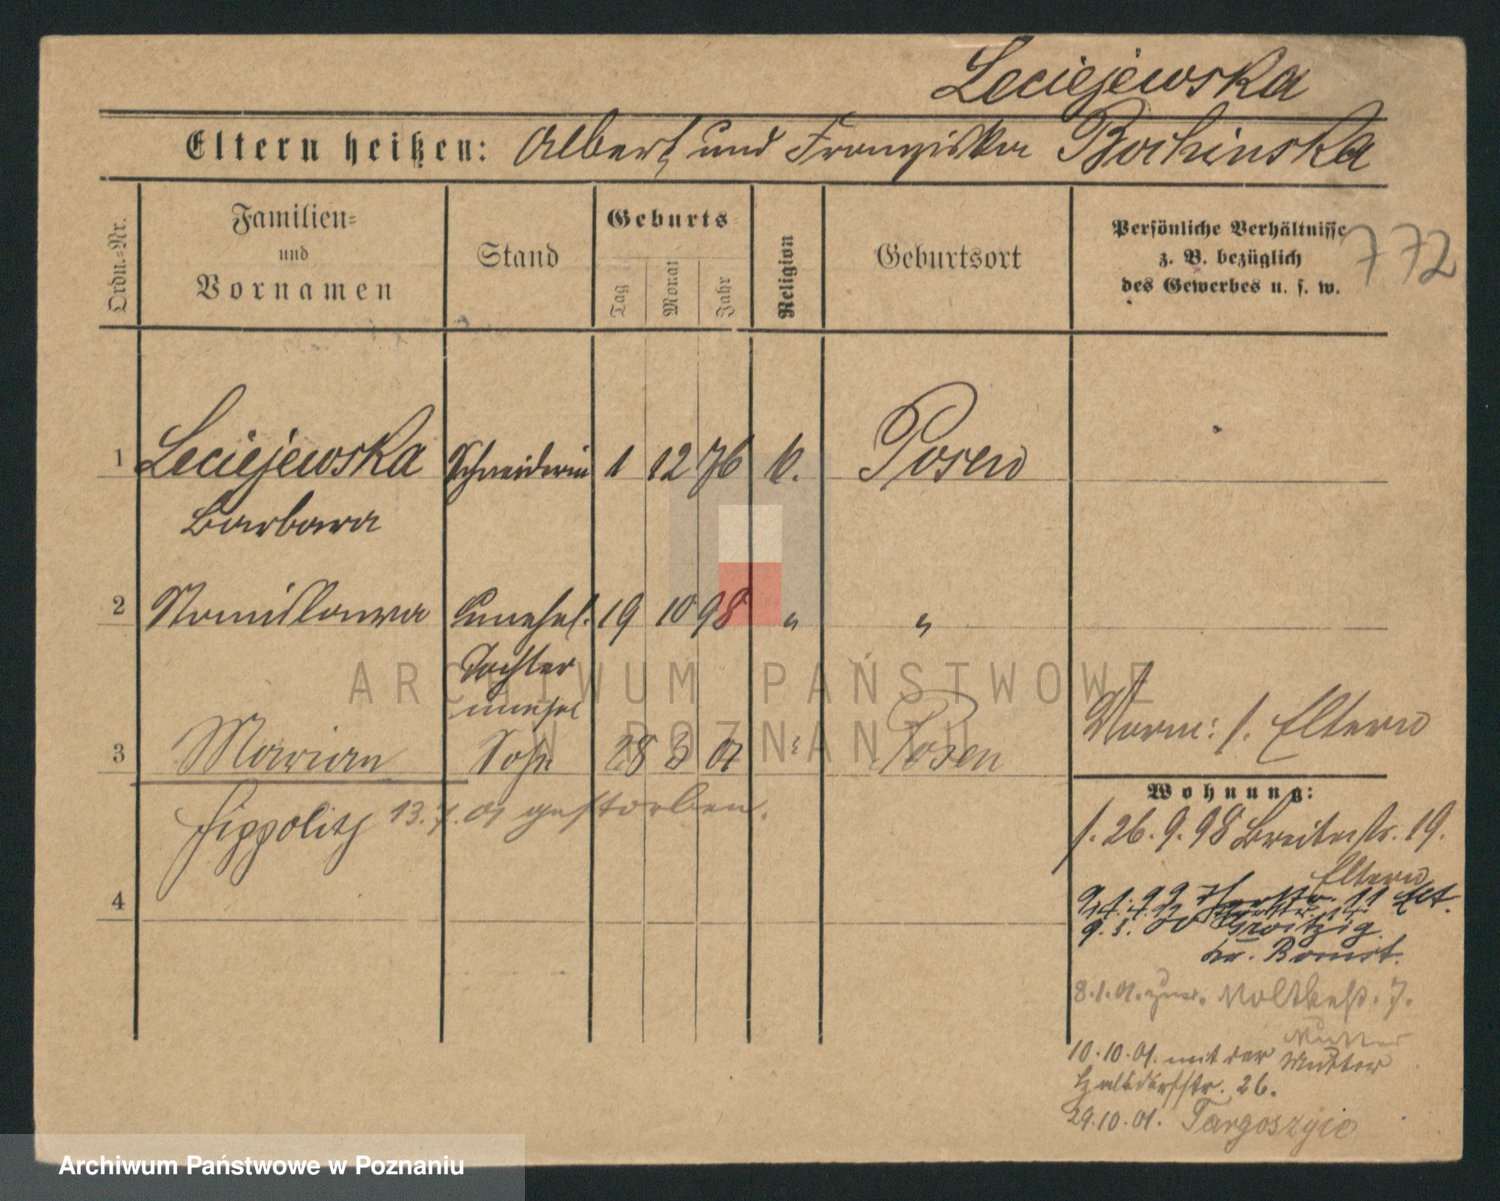 Leciejewska
Eltern heißen: Albert und Franziska Bochinska
Ordn.-Nr.
Familien-
und
Vornamen
Stand
Geburts
Tag
Monat
Jahr
Religion
Geburtsort
Persönliche Verhältnisse
z. B. bezüglich
des Gewerbes u. s. w.
772
1 Leciejewska Schneiderin 1 12 76 k. Posen
Barbara
2 Stanislawa unehel. 19 10 98 " "
Tochter
unehel
3 Marian Sohn 28 01 " Posen
Vorm: s. Eltern
Hippolit 13.7.01 gestorben.
Wohnung:
s. 26.9.98 Breitestr. 19.
Eltern
11 Elt.
Kr. Bomst.
8.1.01. Moltkestr. 7.
Mutter
10.10.01. mit der Mutter
Halbdorfstr. 26.
29.10.01. Targoszyce
4
ARCHIWUM PAŃSTWOWE
W POZNANIU
Archiwum Państwowe w Poznaniu